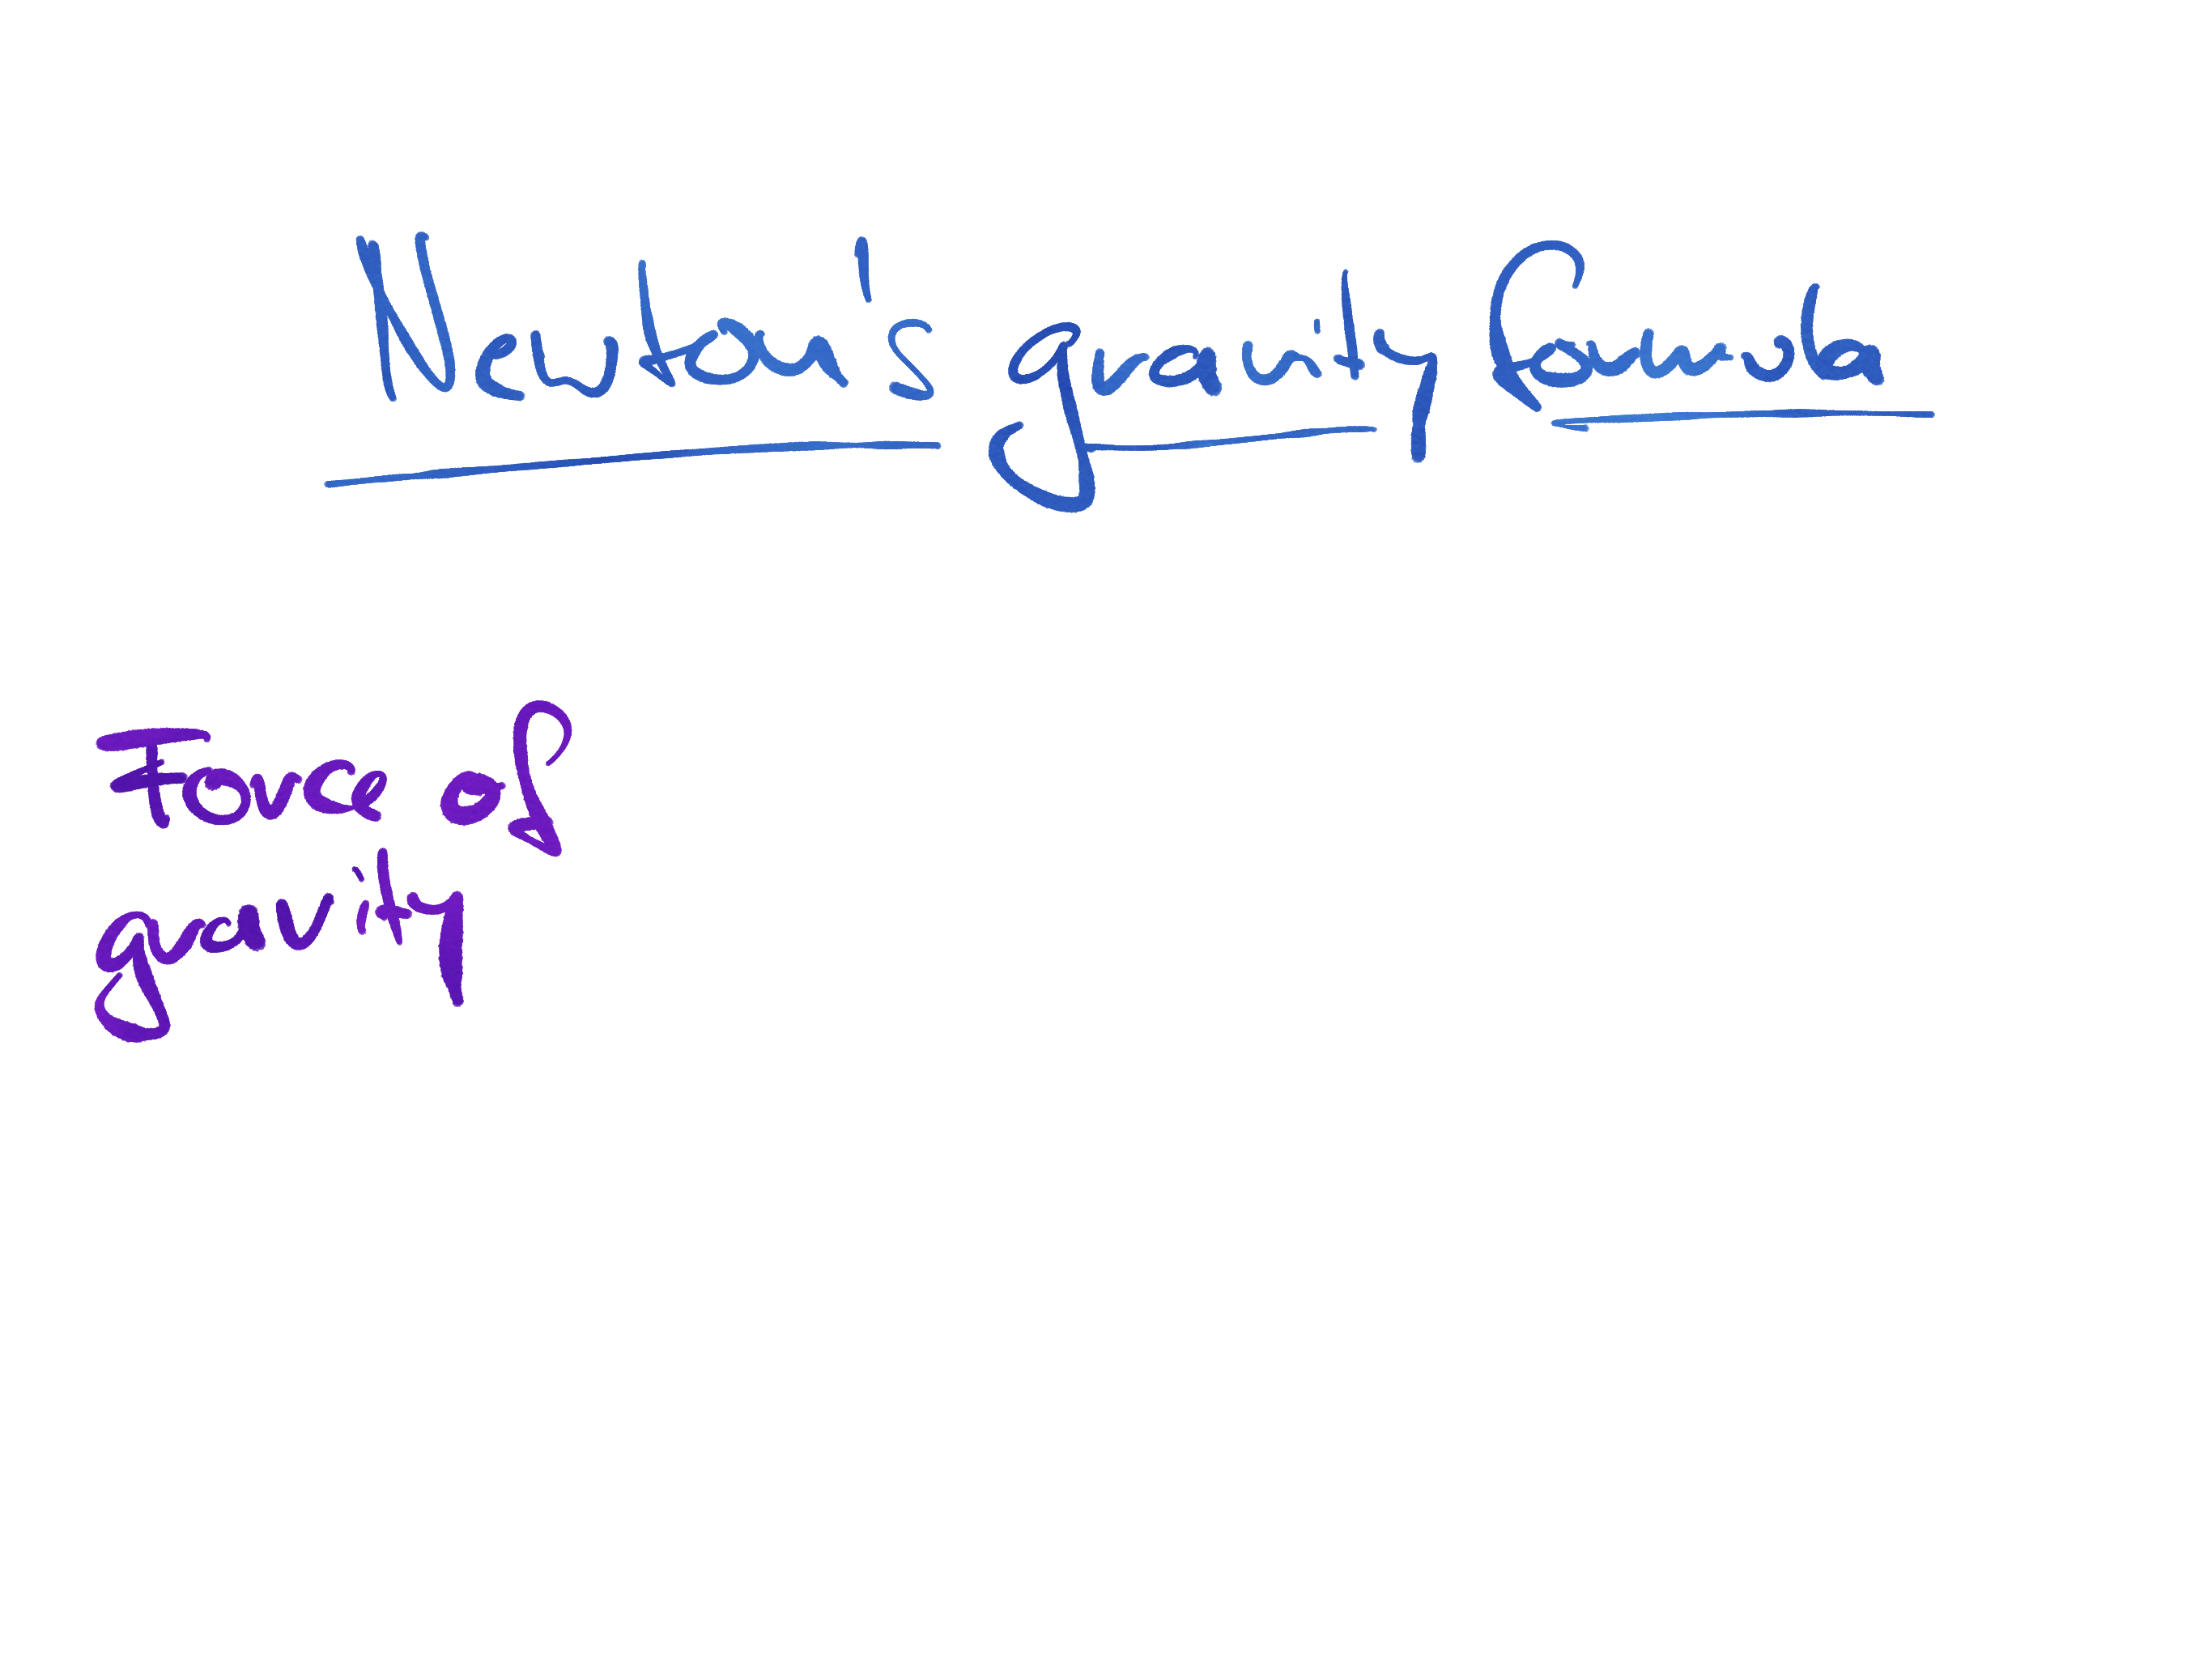 Newton's gravity formula
Force of
gravity